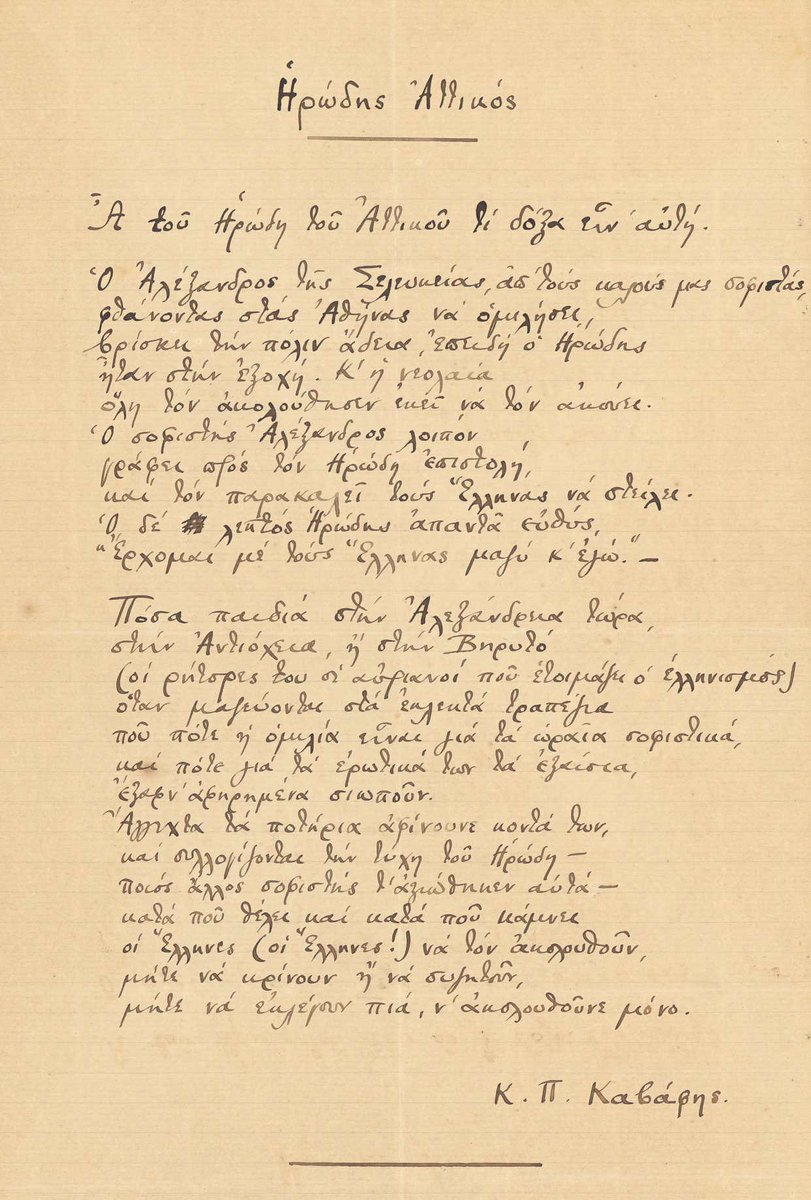 Ἡρώδης Ἀττικός
Ἆ τοῦ Ἡρώδη τοῦ Ἀττικοῦ τί δόξα εἶν' αὐτή.
Ὁ Ἀλέξανδρος τῆς Σελευκείας, ἀπ' τοὺς καλούς μας σοφιστάς,
φθάνοντας στὰς Ἀθήνας νὰ ὁμιλήσει,
βρίσκει τὴν πόλιν ἄδεια, ἐπειδὴ ὁ Ἡρώδης
ἦταν στὴν ἐξοχή. Κ' ἡ νεολαία
ὅλη τὸν ἀκολούθησεν ἐκεῖ νὰ τὸν ἀκούει.
Ὁ σοφιστὴς Ἀλέξανδρος λοιπὸν
γράφει πρὸς τὸν Ἡρώδη ἐπιστολή,
καὶ τὸν παρακαλεῖ τοὺς Ἕλληνας νὰ στείλει.
Ὁ δὲ λεπτὸς Ἡρώδης ἀπαντᾶ εὐθύς,
"Ἔρχομαι μὲ τοὺς Ἕλληνας μαζὺ κ' ἐγώ." —
Πόσα παιδιὰ στὴν Ἀλεξάνδρεια τώρα,
στὴν Ἀντιόχεια, ἢ στὴν Βηρυτὸ
(οἱ ρήτορές του οἱ αὐριανοὶ ποὺ ἑτοιμάζει ὁ ἑλληνισμός)
ὅταν μαζεύονται στὰ ἐκλεκτὰ τραπέζια
ποὺ πότε ἡ ὁμιλία εἶναι γιὰ τὰ ὡραῖα σοφιστικά,
καὶ πότε γιὰ τὰ ἐρωτικά των τὰ ἐξαίσια,
ἔξαφν' ἀφηρημένα σιωποῦν.
Ἄγγιχτα τὰ ποτήρια ἀφίνουνε κοντά των,
καὶ συλλογίζονται τὴν τύχη τοῦ Ἡρώδη —
ποιὸς ἄλλος σοφιστὴς τ' ἀξιώθηκεν αὐτά —
κατὰ ποὺ θέλει καὶ κατὰ ποὺ κάμνει
οἱ Ἕλληνες (οἱ Ἕλληνες!) νὰ τὸν ἀκολουθοῦν,
μήτε νὰ κρίνουν ἢ νὰ συζητοῦν,
μήτε νὰ ἐκλέγουν πιά, ν' ἀκολουθοῦνε μόνο.
Κ. Π. Καβάφης.